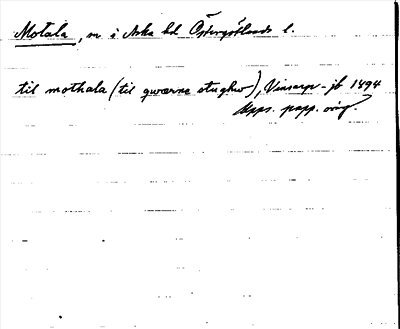 Motala, sn i Aska hd Östergötlands l.
til mothala (til qwærna stughw), Vinsarp-jb 1494
Upps. papp. orig.